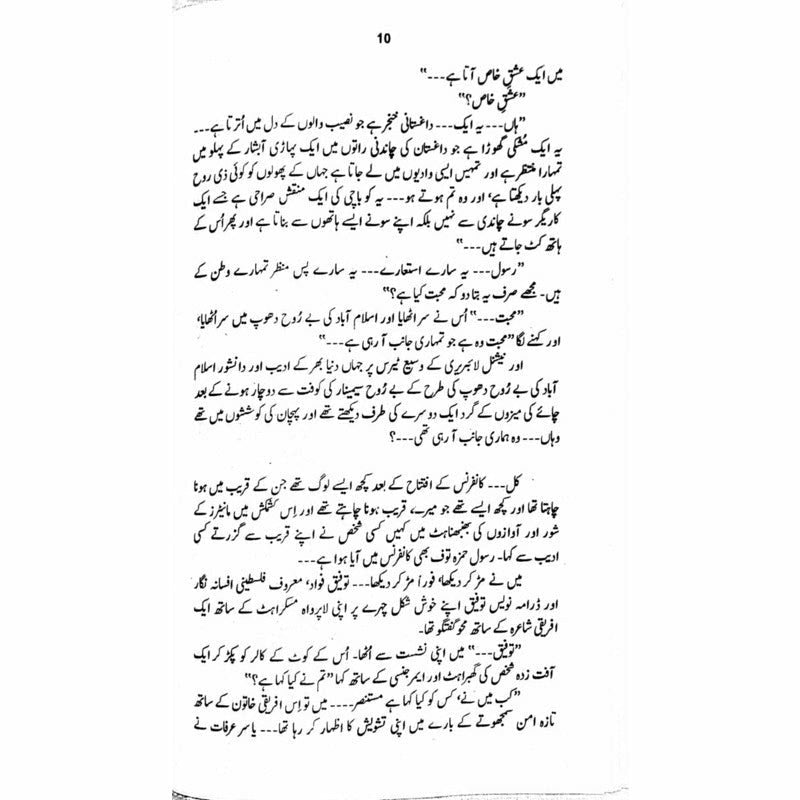 10
میں ایک عشقِ خاص آتا ہے۔۔۔"
"عشقِ خاص؟"
"ہاں۔۔۔ یہ ایک۔۔۔ داغستانی خنجر ہے جو نصیب والوں کے دل میں اُترتا ہے۔۔۔
یہ ایک مُشکی گھوڑا ہے جو داغستان کی چاندنی راتوں میں ایک پہاڑی آبشار کے پہلو میں
تمہارا منتظر ہے اور تمہیں ایسی وادیوں میں لے جاتا ہے جہاں کے پھولوں کو کوئی ذی روح
پہلی بار دیکھتا ہے، اور وہ تم ہوتے ہو۔۔۔ یہ کوباچی کی ایک منقش صراحی ہے جسے ایک
کاریگر سونے چاندی سے نہیں بلکہ اپنے سونے ایسے ہاتھوں سے بناتا ہے اور پھر اُس کے
ہاتھ کٹ جاتے ہیں۔۔۔"
"رسول۔۔۔ یہ سارے استعارے۔۔۔ یہ سارے پس منظر تمہارے وطن کے
ہیں۔ مجھے صرف یہ بتا دو کہ محبت کیا ہے؟"
"محبت۔۔۔" اُس نے سر اٹھایا اور اسلام آباد کی بے رُوح دھوپ میں سر اُٹھایا،
اور کہنے لگا "محبت وہ ہے جو تمہاری جانب آ رہی ہے۔۔۔"
اور نیشنل لائبریری کے وسیع ٹیرس پر جہاں دنیا بھر کے ادیب اور دانشور اسلام
آباد کی بے رُوح دھوپ کی طرح کے بے رُوح سیمینار کی کوفت سے دوچار ہونے کے بعد
چائے کی میزوں کے گرد ایک دوسرے کی طرف دیکھتے تھے اور پہچان کی کوششوں میں تھے
وہاں۔۔۔ وہ ہماری جانب آ رہی تھی۔۔۔؟
کل۔۔۔ کانفرنس کے افتتاح کے بعد کچھ ایسے لوگ تھے جن کے قریب میں ہونا
چاہتا تھا اور کچھ ایسے تھے جو میرے، قریب ہونا چاہتے تھے اور اِس کشمکش میں مانیٹرز کے
شور اور آوازوں کی بھنبھناہٹ میں کہیں کسی شخص نے اپنے قریب سے گزرتے کسی
ادیب سے کہا۔ رسول حمزہ توف بھی کانفرنس میں آیا ہوا ہے۔۔۔
میں نے مڑ کر دیکھا، فوراً مڑ کر دیکھا۔۔۔ توفیق فواد، معروف فلسطینی افسانہ نگار
اور ڈرامہ نویس توفیق اپنے خوش شکل چہرے پر اپنی لاپرواہ مسکراہٹ کے ساتھ ایک
افریقی شاعرہ کے ساتھ محوِ گفتگو تھا۔
"توفیق۔۔۔" میں اپنی نشست سے اُٹھا۔ اُس کے کوٹ کے کالر کو پکڑ کر ایک
آفت زدہ شخص کی گھبراہٹ اور ایمرجنسی کے ساتھ کہا "تم نے کیا کہا ہے؟"
"کب میں نے، کس کو کیا کہا ہے مستنصر۔۔۔۔ میں تو اِس افریقی خاتون کے ساتھ
تازہ امن سمجھوتے کے بارے میں اپنی تشویش کا اظہار کر رہا تھا۔۔۔ یاسر عرفات نے